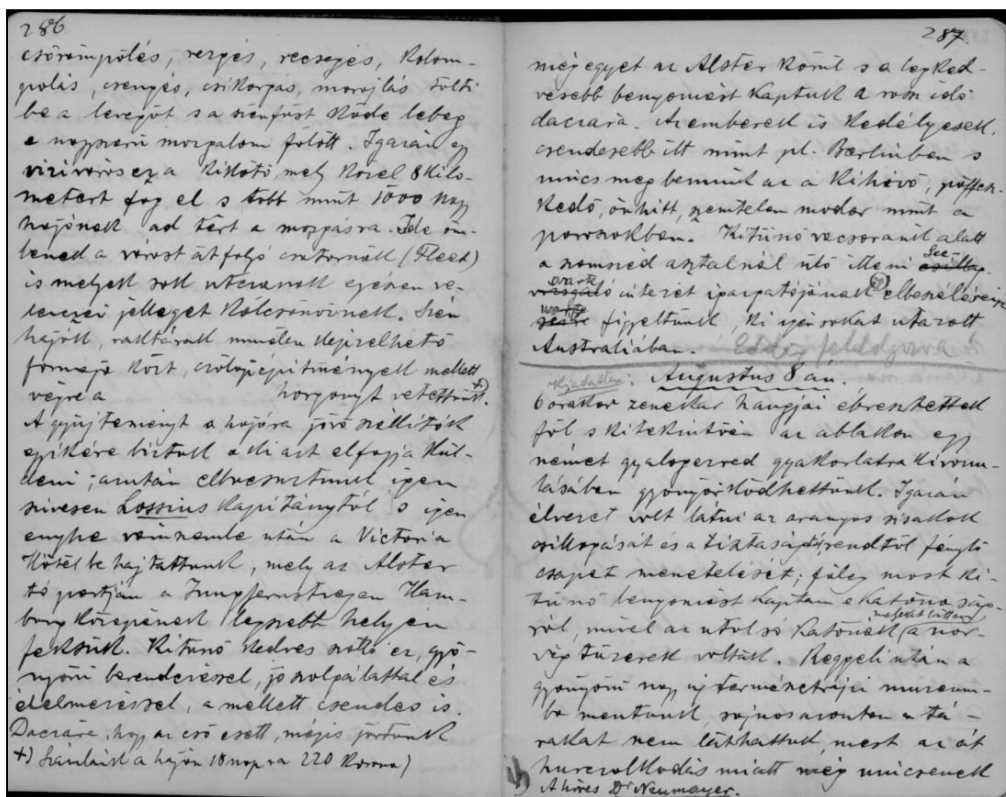 286
csörömpölés, rezgés, recsegés, kolom-
polás, csengés, csikorgás, morajlás tölti
be a levegőt s a szénfüst köde lebeg
e nagyszerű mozgalom fölött. Igazán egy
vizivaros ez a kikötő, mely közel 8 kilo-
metert fog el s több mint 1000 nagy
hajónak ad tért a mozgásra. Ide öm-
lenek a várost átfolyó csatornák (Fleet)
is melyek sok utczának egészen ve-
lenczei jelleget kölcsönöznek. Szén
hajók, raktárak minden képzelhető
formája közt, czölöpépítmények mellett
végre a horgonyt vetettünk +).
A gyüjteményt a hajóra jövő szállitók
egyikére biztuk a ki azt elfogja kül-
deni; azután elbucsuztunk igen
szivesen Lossius kapitánytól s igen
enyhe vámszemle után a Victoria
Hôtelbe hajtattunk, mely az Alster
tó partján a Jungfernstiegen Ham-
burg közepének legszebb helyén
fekszik. Kitünő kedves szálló ez, gyö-
nyörü berendezéssel, jó szolgálattal és
élelmezéssel, a mellett csendes is.
Daczára, hogy az eső esett, mégis jártunk
+) Számláink a hajón 18 napra 220 korona)
287.
még egyet az Alster körül s a legked-
vesebb benyomást kaptuk a rossz idő
daczára. Az emberek is kedélyesek,
csendesebb itt mint pl. Berlinben s
nincs meg bennük az a kihívó, pöffesz-
kedő, önhitt, szemtelen modor mint a
poroszokban. Kitünő vacsoránk alatt
a szomszéd asztalnál ülő itteni See-
warte intézet igazgatójának elbeszélésére
figyeltünk, ki igen sokat utazott
Australiában.
Augusztus 8 án.
6 órakor zenekar hangjai ébresztettek
föl s kitekintvén az ablakon egy
német gyalogezred gyakorlatra kivonu-
lásában gyönyörködhettünk. Igazán
élvezet volt látni az aranyos sisakok
csillogását és a tisztaságtól, rendtől fénylő
csapat menetelését; főleg most ki-
tünő benyomást kaptam e katonaság-
ról, mivel az utolsó katonák melyeket láttam a nor-
vég tüzérek voltak. Reggeli után a
gyönyörü nagy új természetrajzi muzeum-
ba mentünk, sajnos azonban a tá-
rakat nem láthattuk, mert az át
hurczolkodás miatt még nincsenek
A híres Dr Neumayer.